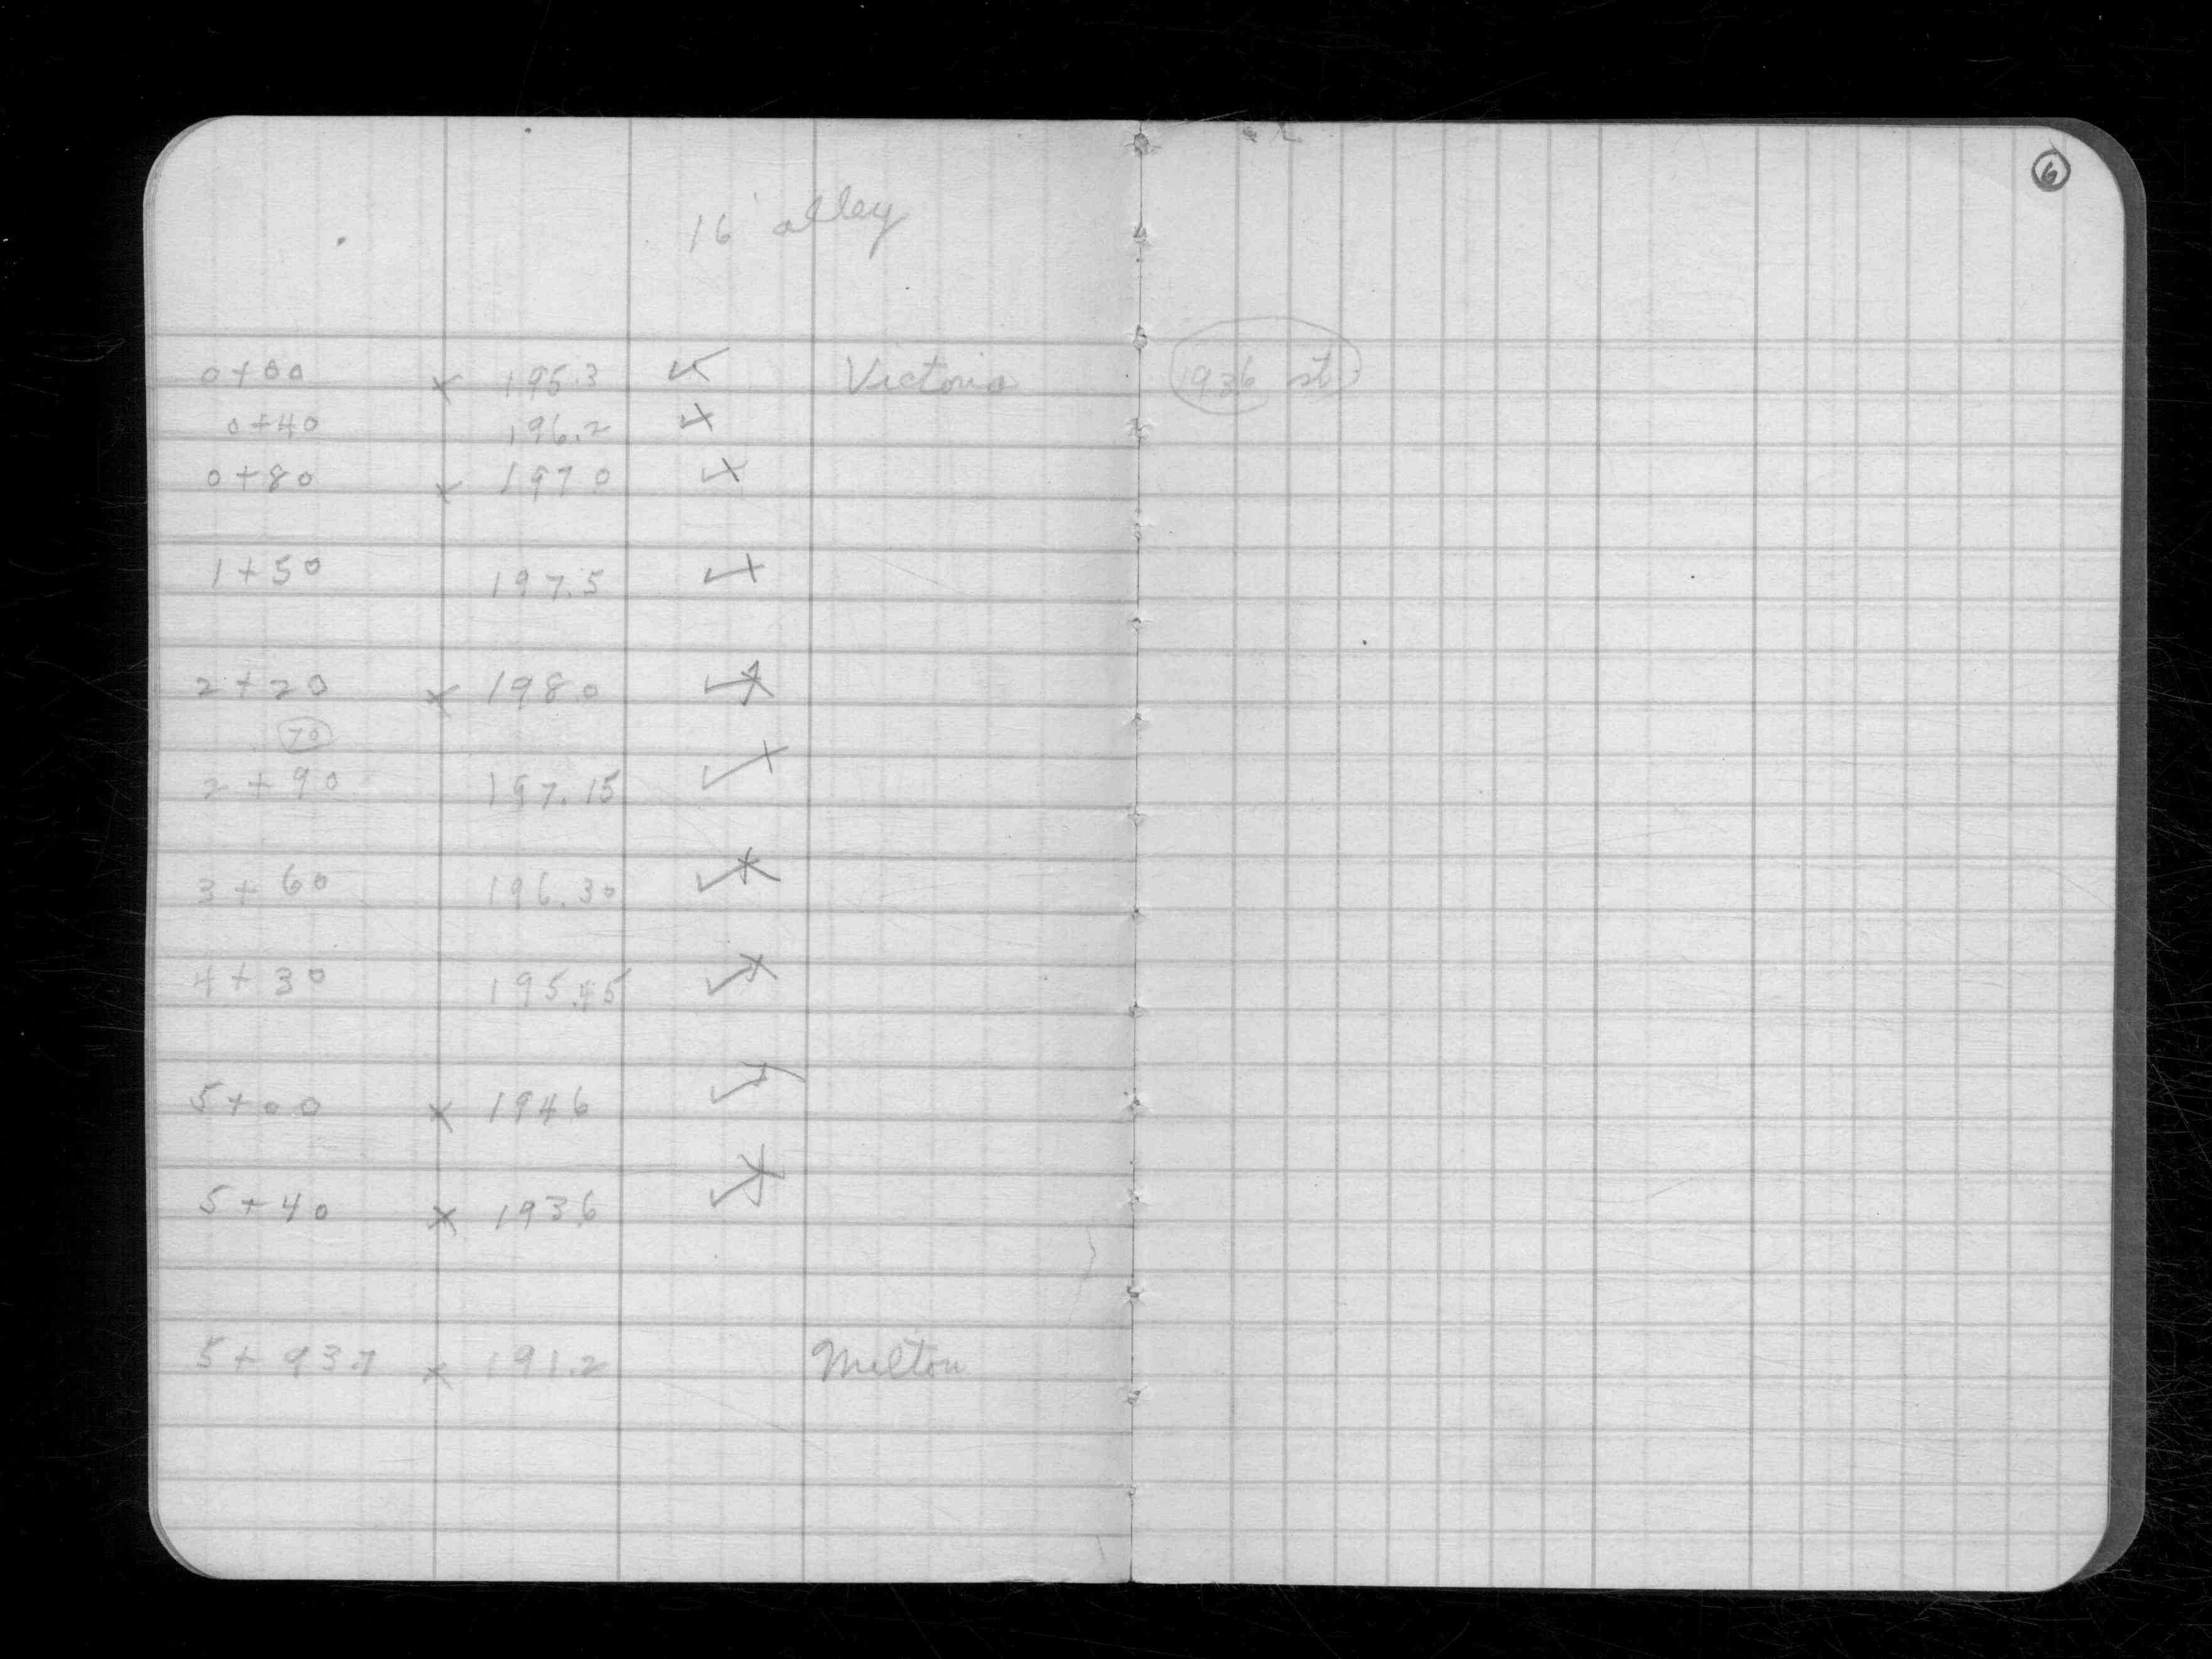 6
16' alley
0+00 x 195.3 ✓ Victoria 1936 st.
0+40 196.2 ✓
0+80 x 197.0 ✓
1+50 197.5 ✓
2+20 x 198.0 ✓
70
2+90 197.15 ✓
3+60 196.30 ✓
4+30 195.45 ✓
5+00 x 194.6 ✓
5+40 x 193.6 ✓
5+93.7 x 191.2 Milton